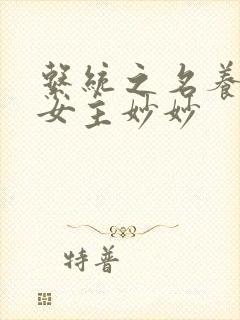 繫統之名養
女主妙妙
特普